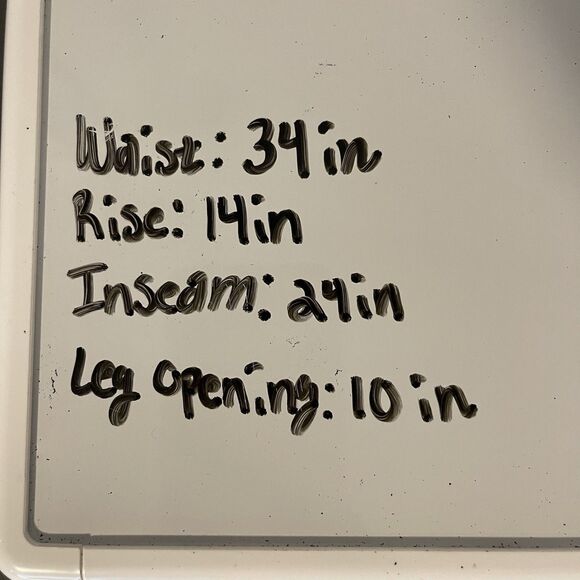 Waist: 34in
Rise: 14in
Inseam: 24in
Leg opening: 10 in